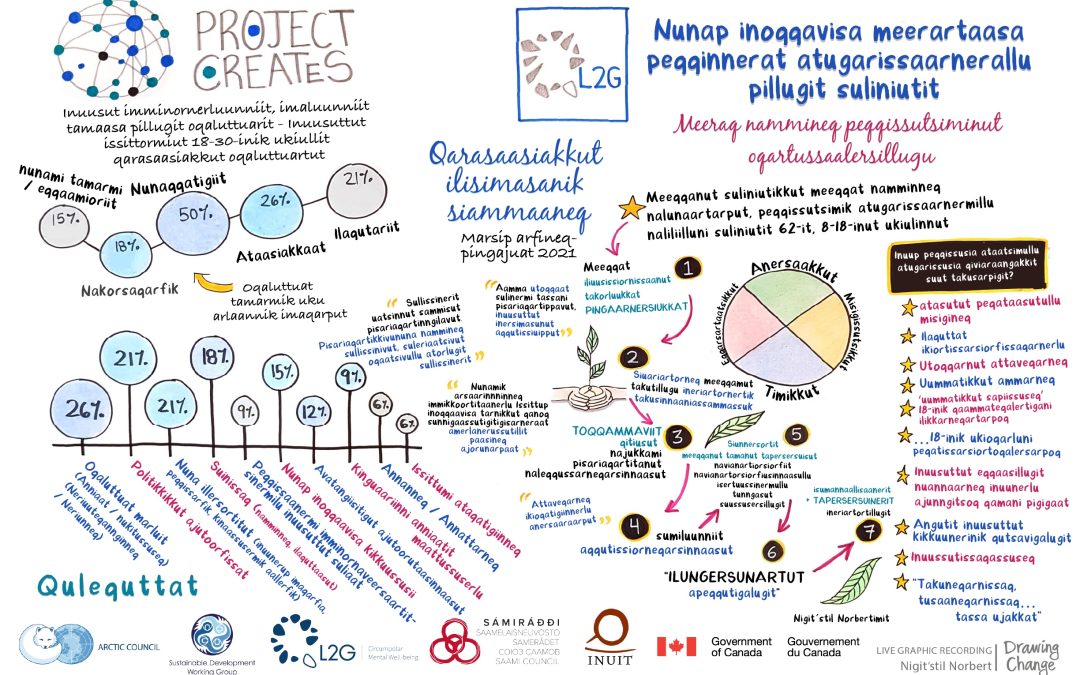 PROJECT
CREATES
Inuusut imminornerluunniit, imaluunniit
tamaasa pillugit oqaluttuarit - Inuusuttut
issittormiut 18-30-inik ukiullit
qarasaasiakkut oqaluttuartut
nunami tamarmi
/ eqqaamioriit
15%
18%
Nakorsaqarfik
Nunaqqatigiit
50%
26%
Ataasiakkaat
21%
Ilaqutariit
Oqaluttuat
tamarmik uku
arlaannik imaqarput
26%
21%
21%
18%
9%
15%
12%
9%
6%
6%
Oqaluttuat marluit
(Anniaat / nukitussuseq)
(Nerisuteqannginneq
/ Neriunneq)
Politikkikkut ajutoorfissat
Nuna illersortitut (inuunerup imaqarfia,
peqqissarfik, kinaassutsermik aallerfik)
Suinissaq (namminneq, ilaquttaasut)
Peqqitsaanermi imminornaveersaartit-
sinermilu inuusuttut suliaat
Nunap inoqqaavisa kikkuussusii
Avatangiisitigut ajutoorutaasinnaasut
Kinguaariinni anniaatit
maattussuserlu
Annanneq / Annattarneq
Issittumi ataqatigiinneq
Qulequttat
L2G
Qarasaasiakkut
ilisimasanik
siammaaneq
Marsip arfineq-
pingajuat 2021
Sullissinerit
uatsinnut sammisut
pisariaqartinngilavut
Pisariaqartikkivununa nammineq
sullissinivut, suleriaatsivut
oqaatsivullu atorlugit
sullissinerit
Aamma utoqqaat
sulinermi tassani
pisariaqartippavut,
inuusuttut
inersimasunut
aqqutissiuipput
Nunamik
arsaarinninneq
immikkoortitaanerlu Issittup
inoqqaavisa tarnikkut qanoq
sunnigaassutigitigisaraat
amerlanerussutillit
paasineq
ajornarpaat
Attaveqarneq
ikioqatigiinnerlu
anersaaraarput
Nunap inoqqavisa meerartaasa
peqqinnerat atugarissaarnerallu
pillugit suliniutit
Meeraq nammineq peqqissutsiminut
oqartussaalersillugu
Meeqqanut suliniutikkut meeqqat namminneq
nalunaartarput, peqqissutsimik atugarissaarnermillu
naliliilluni suliniutit 62-it, 8-18-inut ukiulinnut
Meeqqat
iliuusissiornissaanut
takorluukkat
PINGAARNERSIUKKAT
1
2
Siuariartorneq meeqqamut
takutillugu ineriartornertik
takusinnaaniassammassuk
TOQQAMMAVIIT
qitiusut
najukkami
pisariaqartitanut
naleqqussarneqarsinnaasut
3
4
sumiluunniit
aqqutissiorneqarsinnaasut
Siunnersortit
meeqqanut tamanut tapersersuisut
navianartorsiorfiit
navianartorsiorfiusinnaasullu
isertuussinermullu
tunngasut
suussusersillugit
5
6
"ILUNGERSUNARTUT
apeqqutigalugit"
isumannaallisaanerit
+ TAPERSERSUINERIT
ineriartortillugit
7
Nigit'stil Norbertimit
Anersaakkut
Misigissutsikkut
Timikkut
Eqqarsartaatsikkut
Inuup peqqissusia ataatsimullu
atugarissusia qiviaraangakkit
suut takusarpigit?
atasutut peqataasutullu
misigineq
Ilaquttat
ikiortissarsiorfissaqarnerlu
Utoqqarnut attaveqarneq
Uummatikkut ammarneq
'uummatikkut sapiissuseq'
18-inik qaammateqalertigani
ilikkarneqartarpoq
...18-inik ukioqarluni
peqatissarsiortoqalersarpoq
Inuusuttut eqqaasilllugit
nuannaarneq inuunerlu
ajunngitsoq qamani pigigaat
Angutit inuusuttut
kikkuunerinik qutsavigalugit
Inuussutissaqassuseq
"Takuneqarnissaq,
tusaaneqarnissaq...
tassa ujakkat"
ARCTIC COUNCIL
Sustainable Development
Working Group
L2G
Circumpolar
Mental Well-being
SÁMIRÁĐĐI
SAAMELAISNEUVOSTO
SAMERÅDET
СОЮЗ СААМОВ
SAAMI COUNCIL
INUIT
Government
of Canada
Gouvernement
du Canada
LIVE GRAPHIC RECORDING
Nigit'stil Norbert
Drawing
Change